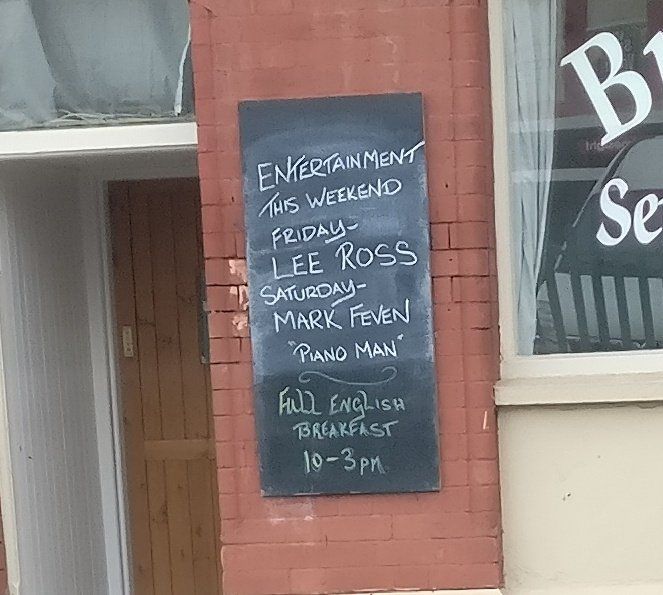 ENTERTAINMENT
THIS WEEKEND
FRIDAY-
LEE ROSS
SATURDAY-
MARK FEVEN
"PIANO MAN"
FULL ENGLISH
BREAKFAST
10-3PM
Br
Se